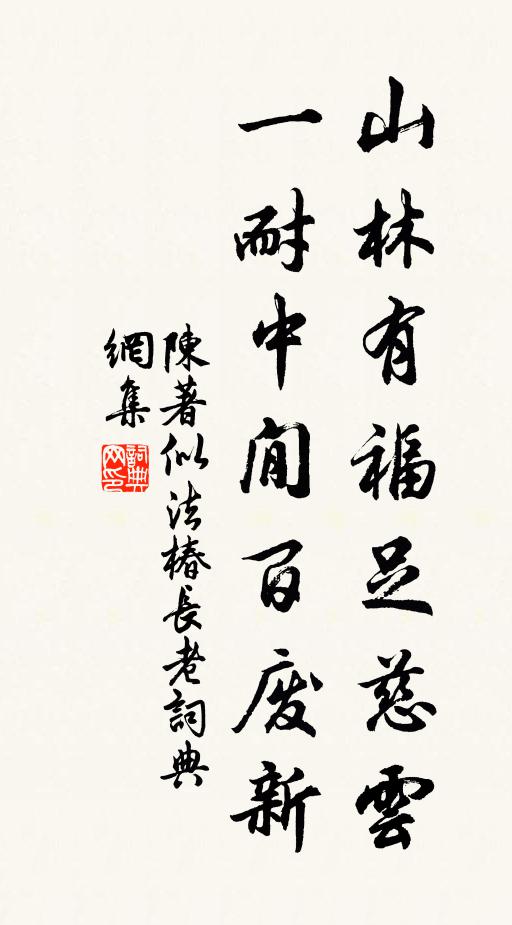 山林有福足慈雲
一耐中間百废新
陳著似法椿長老詞典
網集
詞典
网印